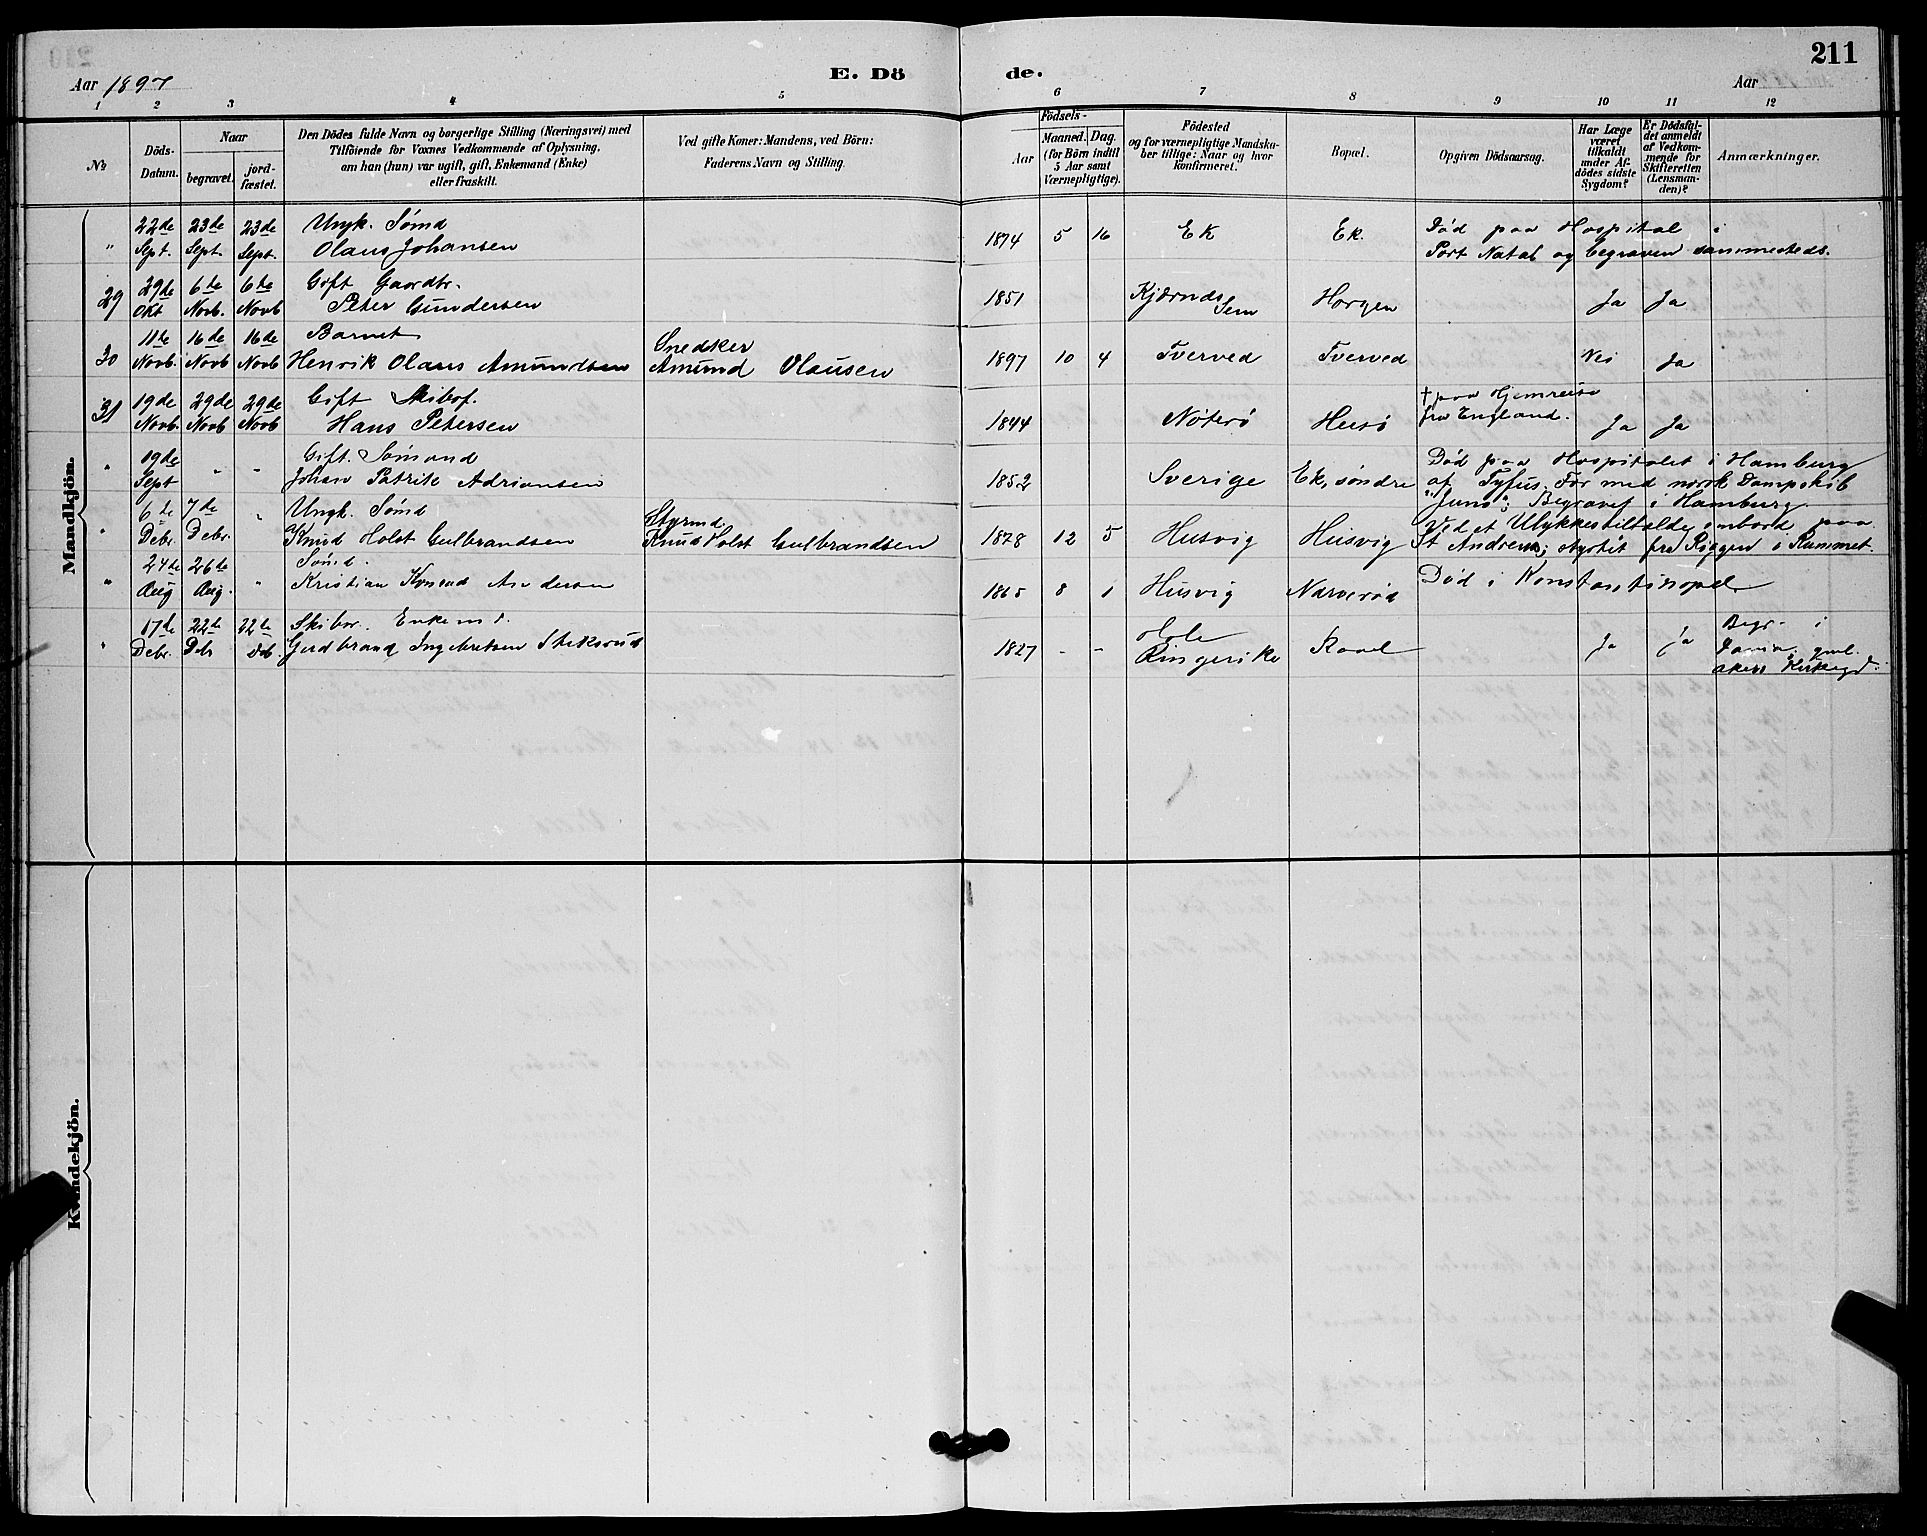 211
Aar 1897
E. Dö
de.
Aar
1 2 3 4 5 6 7 8 9 10 11 12
№
Döds-
Datum.
Naar
begravet.
jord-
fæstet.
Den Dödes fulde Navn og borgerlige Stilling (Næringsvei) med
Tilföiende for Voxnes Vedkommende af Oplysning,
om han (hun) var ugift, gift, Enkemand (Enke)
eller fraskilt.
Ved gifte Koner: Mandens, ved Börn:
Faderens Navn og Stilling.
Födsels-
Aar
Maaned.
Dag.
(for Börn indtil
5 Aar samt
Værnepligtige).
Födested
og for værnepligtige Mandska-
ber tillige: Naar og hvor
konfirmeret.
Bopæl.
Opgiven Dödsaarsag.
Har Læge
været
tilkaldt
under Af-
dödes sidste
Sygdom?
Er Dödsfal-
det anmeldt
af Vedkom-
mende for
Skifteretten
(Lensman-
den)?
Anmærkninger.
Mandkjön.
22de 23de 23de Ungk. Sømd Død paa Hospital i
" Sept. Sept. Sept. Olaus Johansen 1874 5 16 Ek Ek. Port Natal og begraven sammesteds.
29de 6te 6te Gift Gaardbr.
29 Okt Novb. Novb Peter Gundersen 1851 Kjærnds Sem Horgen Ja Ja
11te 16de 16de Barnet Snedker
30 Novb. Novb Novb Henrik Olaus Amundsen Amund Olausen 1897 10 4 Tverved Tverved Nei Ja
19de 29de 29de Gift Skibsf. † paa Hjemreise
31 Novb. Novb Novb Hans Petersen 1844 Nøterø Husø fra England. Ja Ja
19de Gift. Sømand Død paa Hospitalet i Hamburg
" Sept " " Johan Patrik Adriansen 1852 Sverige Ek, søndre af Tyfus. For med norsk Dampskib
"Juno"; Begravet i Hamburg.
6te 7de " Ungk. Sømd Styrmd. Ved et Ulykkestilfælde ombord paa
" Debr. Debr. Knud Holst Gulbrandsen Knud Holst Gulbrandsen 1878 12 5 Husvig Husvig St Andrew; styrtet fra Riggen i Rummet.
24de 26de Sømd.
" Aug Aug. " Kristian Konrad Andersen 1865 8 1 Husvig Narverød Død i Konstantinopel
17de 22de 22de Skibsr. Enkemd. Hole Begr. i
" Debr. Debr Deb Gudbrand Ingebretsen 1827 - - Ringerike Kaael Ja Ja gml.
Akers Kirkegd.
Kvindekjön.